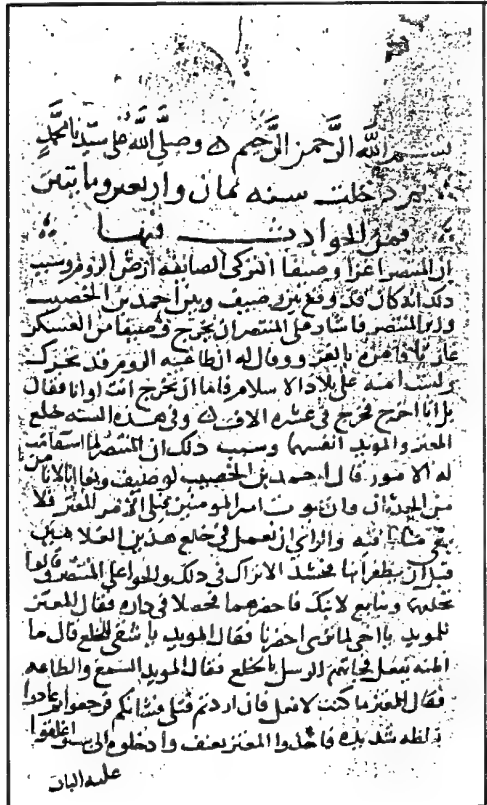 بسم الله الرحمن الرحيم ه وصلى الله على سيدنا محمد
ثم دخلت سنه ثمان واربعين وماىتين
فمن الحوادث فيها
ان المنتصر اغزا وصيفا التركى الصائفه ارض الروم وسبب
ذلك انه كان قد وقع بين وصيف وبين احمد بن الخصيب
وزير المنتصر فاشار على المنتصر ان يخرج وصيفا من العسكر
غازيا فامره بالغزو وقال له ان طاغيه الروم قد تحرك
ولست امنه على بلاد الاسلام فاما ان تخرج انت او انا فقال
بل انا اخرج فخرج فى عشره الاف ه وفى هذه السنه خلع
المعتز والمويد انفسهما وسبب ذلك ان المنتصر لما استقامت
له الامور قال احمد بن الخصيب لوصيف وبغا انا لا نامن
من الحدثان وان يموت امير المومنين فيلى الامر المعتز فلا
يبقى منا باقيه والراى ان نعمل فى خلع هذين الغلامين
قبل ان يظفرا بنا فجد الاتراك فى ذلك والحوا على المنتصر وقالوا
نخلعهما ونبايع لابنك فاحضرهما فجعلا فى دار فقال المعتز
للمويد يا اخى لم ترى احضرنا فقال المويد يا شقى للخلع قال ما
اظنه يفعل فجاتهم الرسل بالخلع فقال المويد السمع والطاعه
فقال المعتز ما كنت لافعل فان اردتم قتلى فشانكم فرجعوا ثم عادوا
بغلظه شديده فاخذوا المعتز بعنف وادخلوه الى بيت واغلقوا
عليه الباب